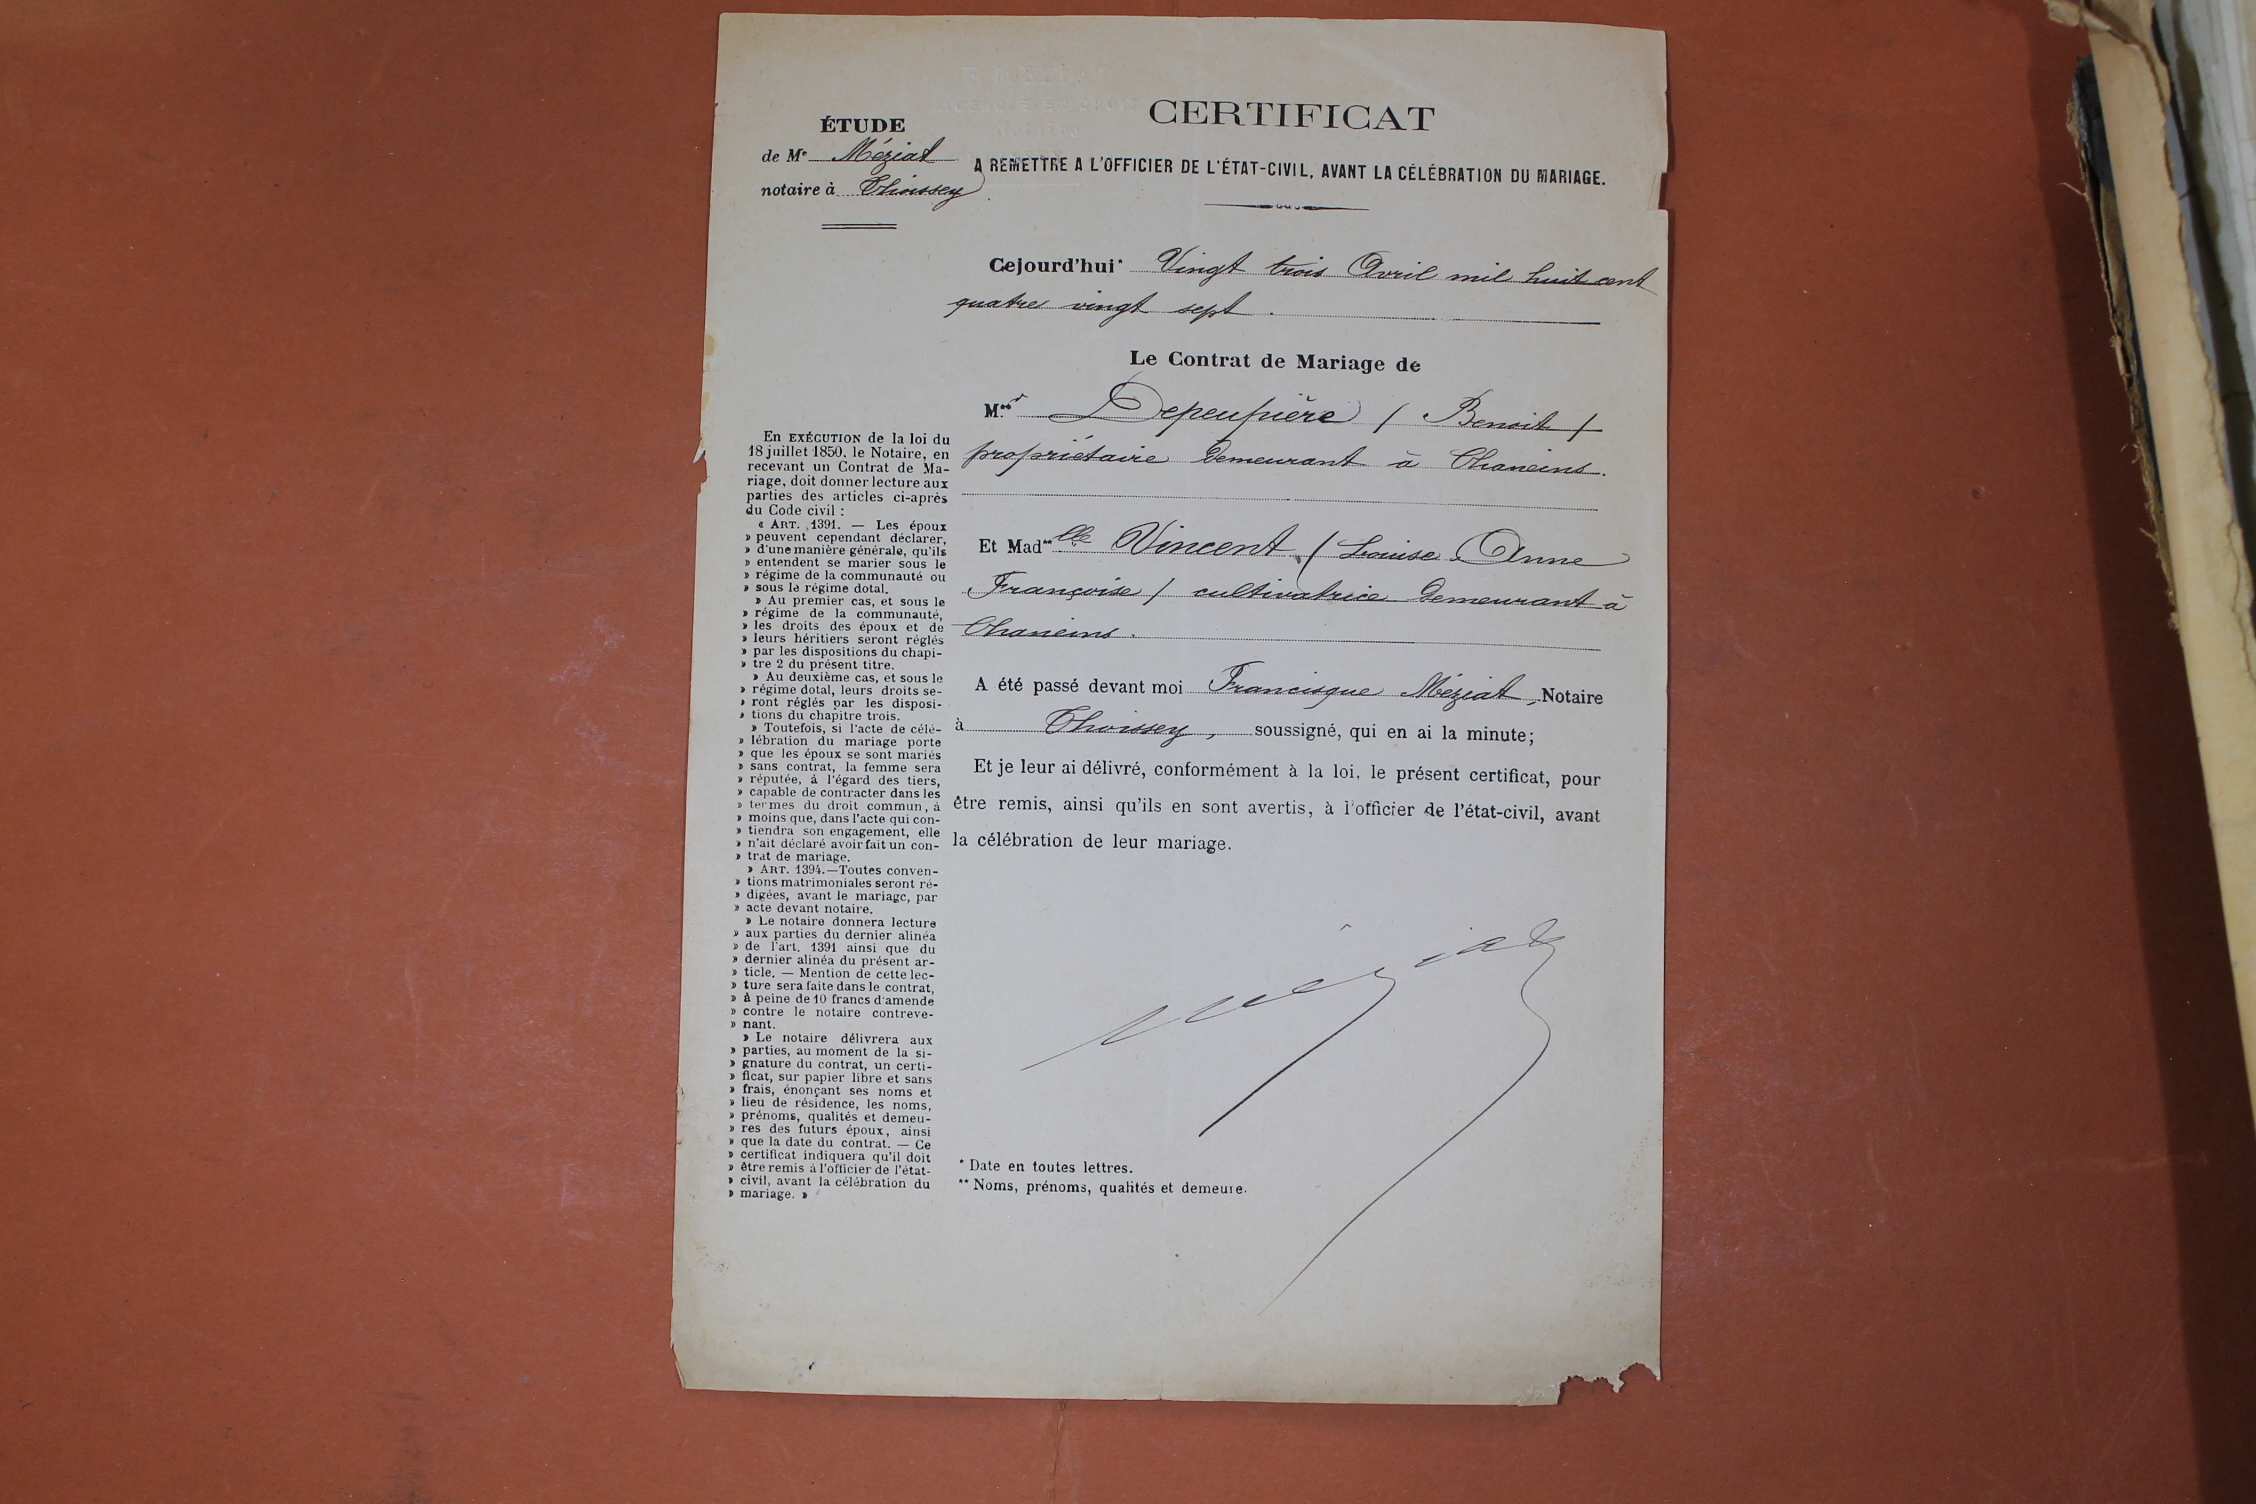 ÉTUDE
de Me Méziat
notaire à Thoissey
CERTIFICAT
A REMETTRE A L'OFFICIER DE L'ÉTAT-CIVIL, AVANT LA CÉLÉBRATION DU MARIAGE.
Cejourd'hui* Vingt trois Avril mil huit cent
quatre vingt sept.
Le Contrat de Mariage de
M.**r Depeupière / Benoit /
propriétaire demeurant à Chaneins.
Et Mad**lle Vincent, / Louise Anne
Françoise / cultivatrice demeurant à
Chaneins.
A été passé devant moi Francisque Méziat, Notaire
à Thoissey, soussigné, qui en ai la minute;
Et je leur ai délivré, conformément à la loi, le présent certificat, pour
être remis, ainsi qu'ils en sont avertis, à l'officier de l'état-civil, avant
la célébration de leur mariage.
Méziat
* Date en toutes lettres.
** Noms, prénoms, qualités et demeure.
En EXÉCUTION de la loi du
18 juillet 1850, le Notaire, en
recevant un Contrat de Ma-
riage, doit donner lecture aux
parties des articles ci-après
du Code civil :
« ART. 1391. — Les époux
» peuvent cependant déclarer,
» d'une manière générale, qu'ils
» entendent se marier sous le
» régime de la communauté ou
» sous le régime dotal.
» Au premier cas, et sous le
» régime de la communauté,
» les droits des époux et de
» leurs héritiers seront réglés
» par les dispositions du chapi-
» tre 2 du présent titre.
» Au deuxième cas, et sous le
» régime dotal, leurs droits se-
» ront réglés par les disposi-
» tions du chapitre trois.
» Toutefois, si l'acte de célé-
» lébration du mariage porte
» que les époux se sont mariés
» sans contrat, la femme sera
» réputée, à l'égard des tiers,
» capable de contracter dans les
» termes du droit commun, à
» moins que, dans l'acte qui con-
» tiendra son engagement, elle
» n'ait déclaré avoir fait un con-
» trat de mariage.
» ART. 1394.—Toutes conven-
» tions matrimoniales seront ré-
» digées, avant le mariage, par
» acte devant notaire.
» Le notaire donnera lecture
» aux parties du dernier alinéa
» de l'art. 1391 ainsi que du
» dernier alinéa du présent ar-
» ticle. — Mention de cette lec-
» ture sera faite dans le contrat,
» à peine de 10 francs d'amende
» contre le notaire contreve-
» nant.
» Le notaire délivrera aux
» parties, au moment de la si-
» gnature du contrat, un certi-
» ficat, sur papier libre et sans
» frais, énonçant ses noms et
» lieu de résidence, les noms,
» prénoms, qualités et demeu-
» res des futurs époux, ainsi
» que la date du contrat. — Ce
» certificat indiquera qu'il doit
» être remis à l'officier de l'état-
» civil, avant la célébration du
» mariage. »